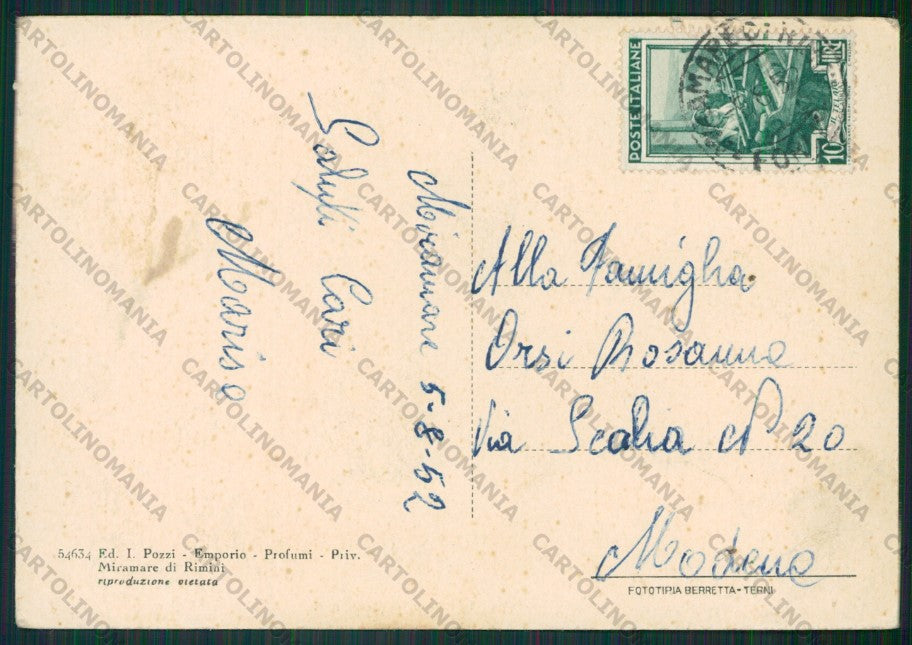 Miramare 5-8-52
Saluti Cari
Marisa
POSTE ITALIANE
10 LIRE
Alla Famiglia
Orsi Rosanna
Via Scalia N 20
Modena
54634 Ed. I. Pozzi - Emporio - Profumi - Priv.
Miramare di Rimini
riproduzione vietata
FOTOTIPIA BERRETTA - TERNI
CARTOLINOMANIA